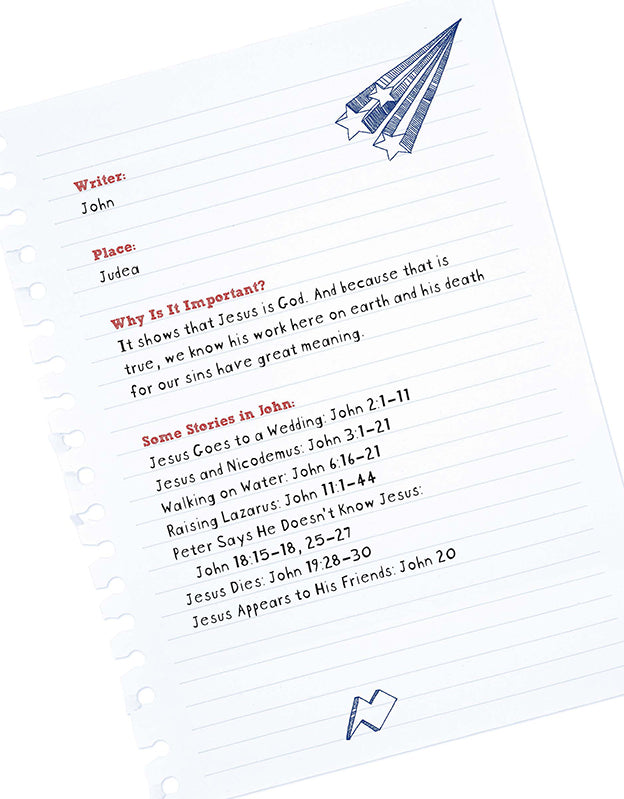 Writer:
John
Place:
Judea
Why Is It Important?
It shows that Jesus is God. And because that is
true, we know his work here on earth and his death
for our sins have great meaning.
Some Stories in John:
Jesus Goes to a Wedding: John 2:1–11
Jesus and Nicodemus: John 3:1–21
Walking on Water: John 6:16–21
Raising Lazarus: John 11:1–44
Peter Says He Doesn't Know Jesus:
John 18:15–18, 25–27
Jesus Dies: John 19:28–30
Jesus Appears to His Friends: John 20